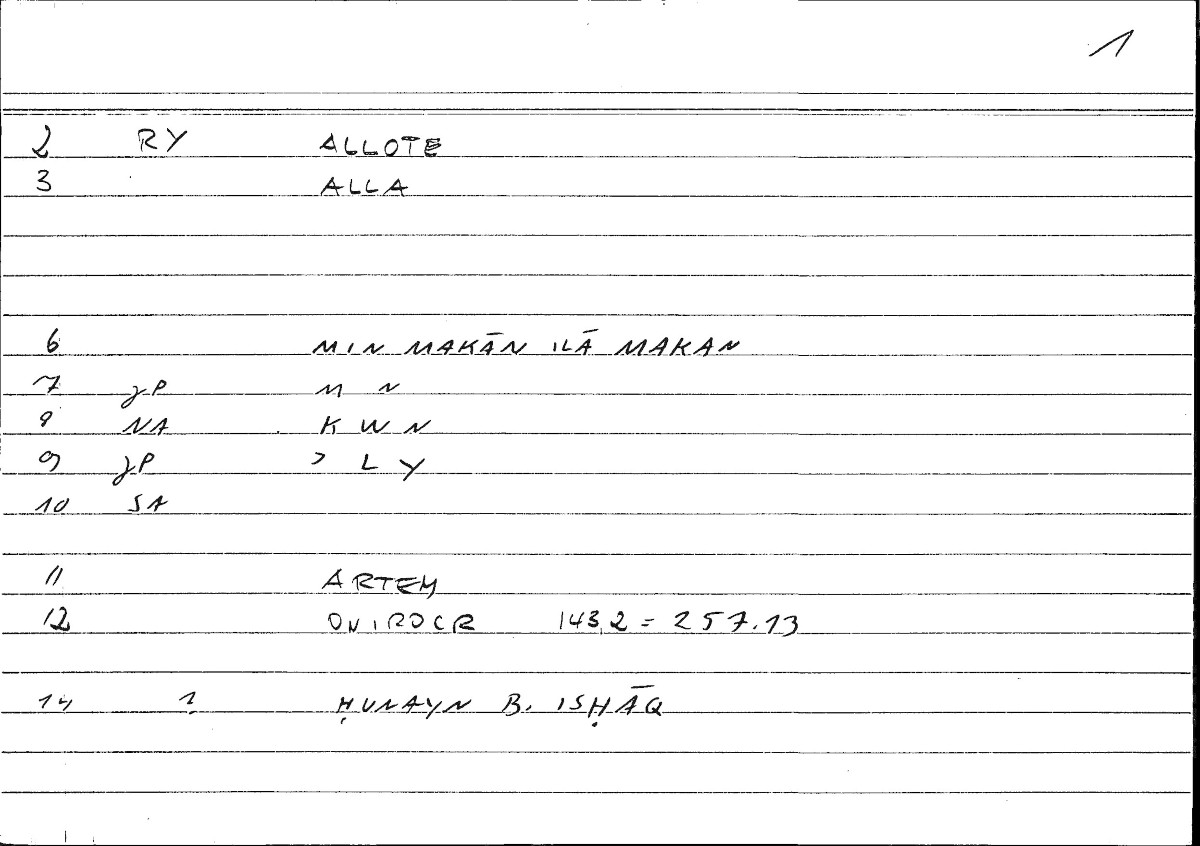 1
2 RY ALLOTE
3 ALLA
6 MIN MAKĀN ILĀ MAKAN
7 JP M N
8 NA K W N
9 JP ʾ L Y
10 SA
11 ARTEM
12 ONIROCR 143,2 = 257.13
14 1. ḤUNAYN B. ISḤĀQ